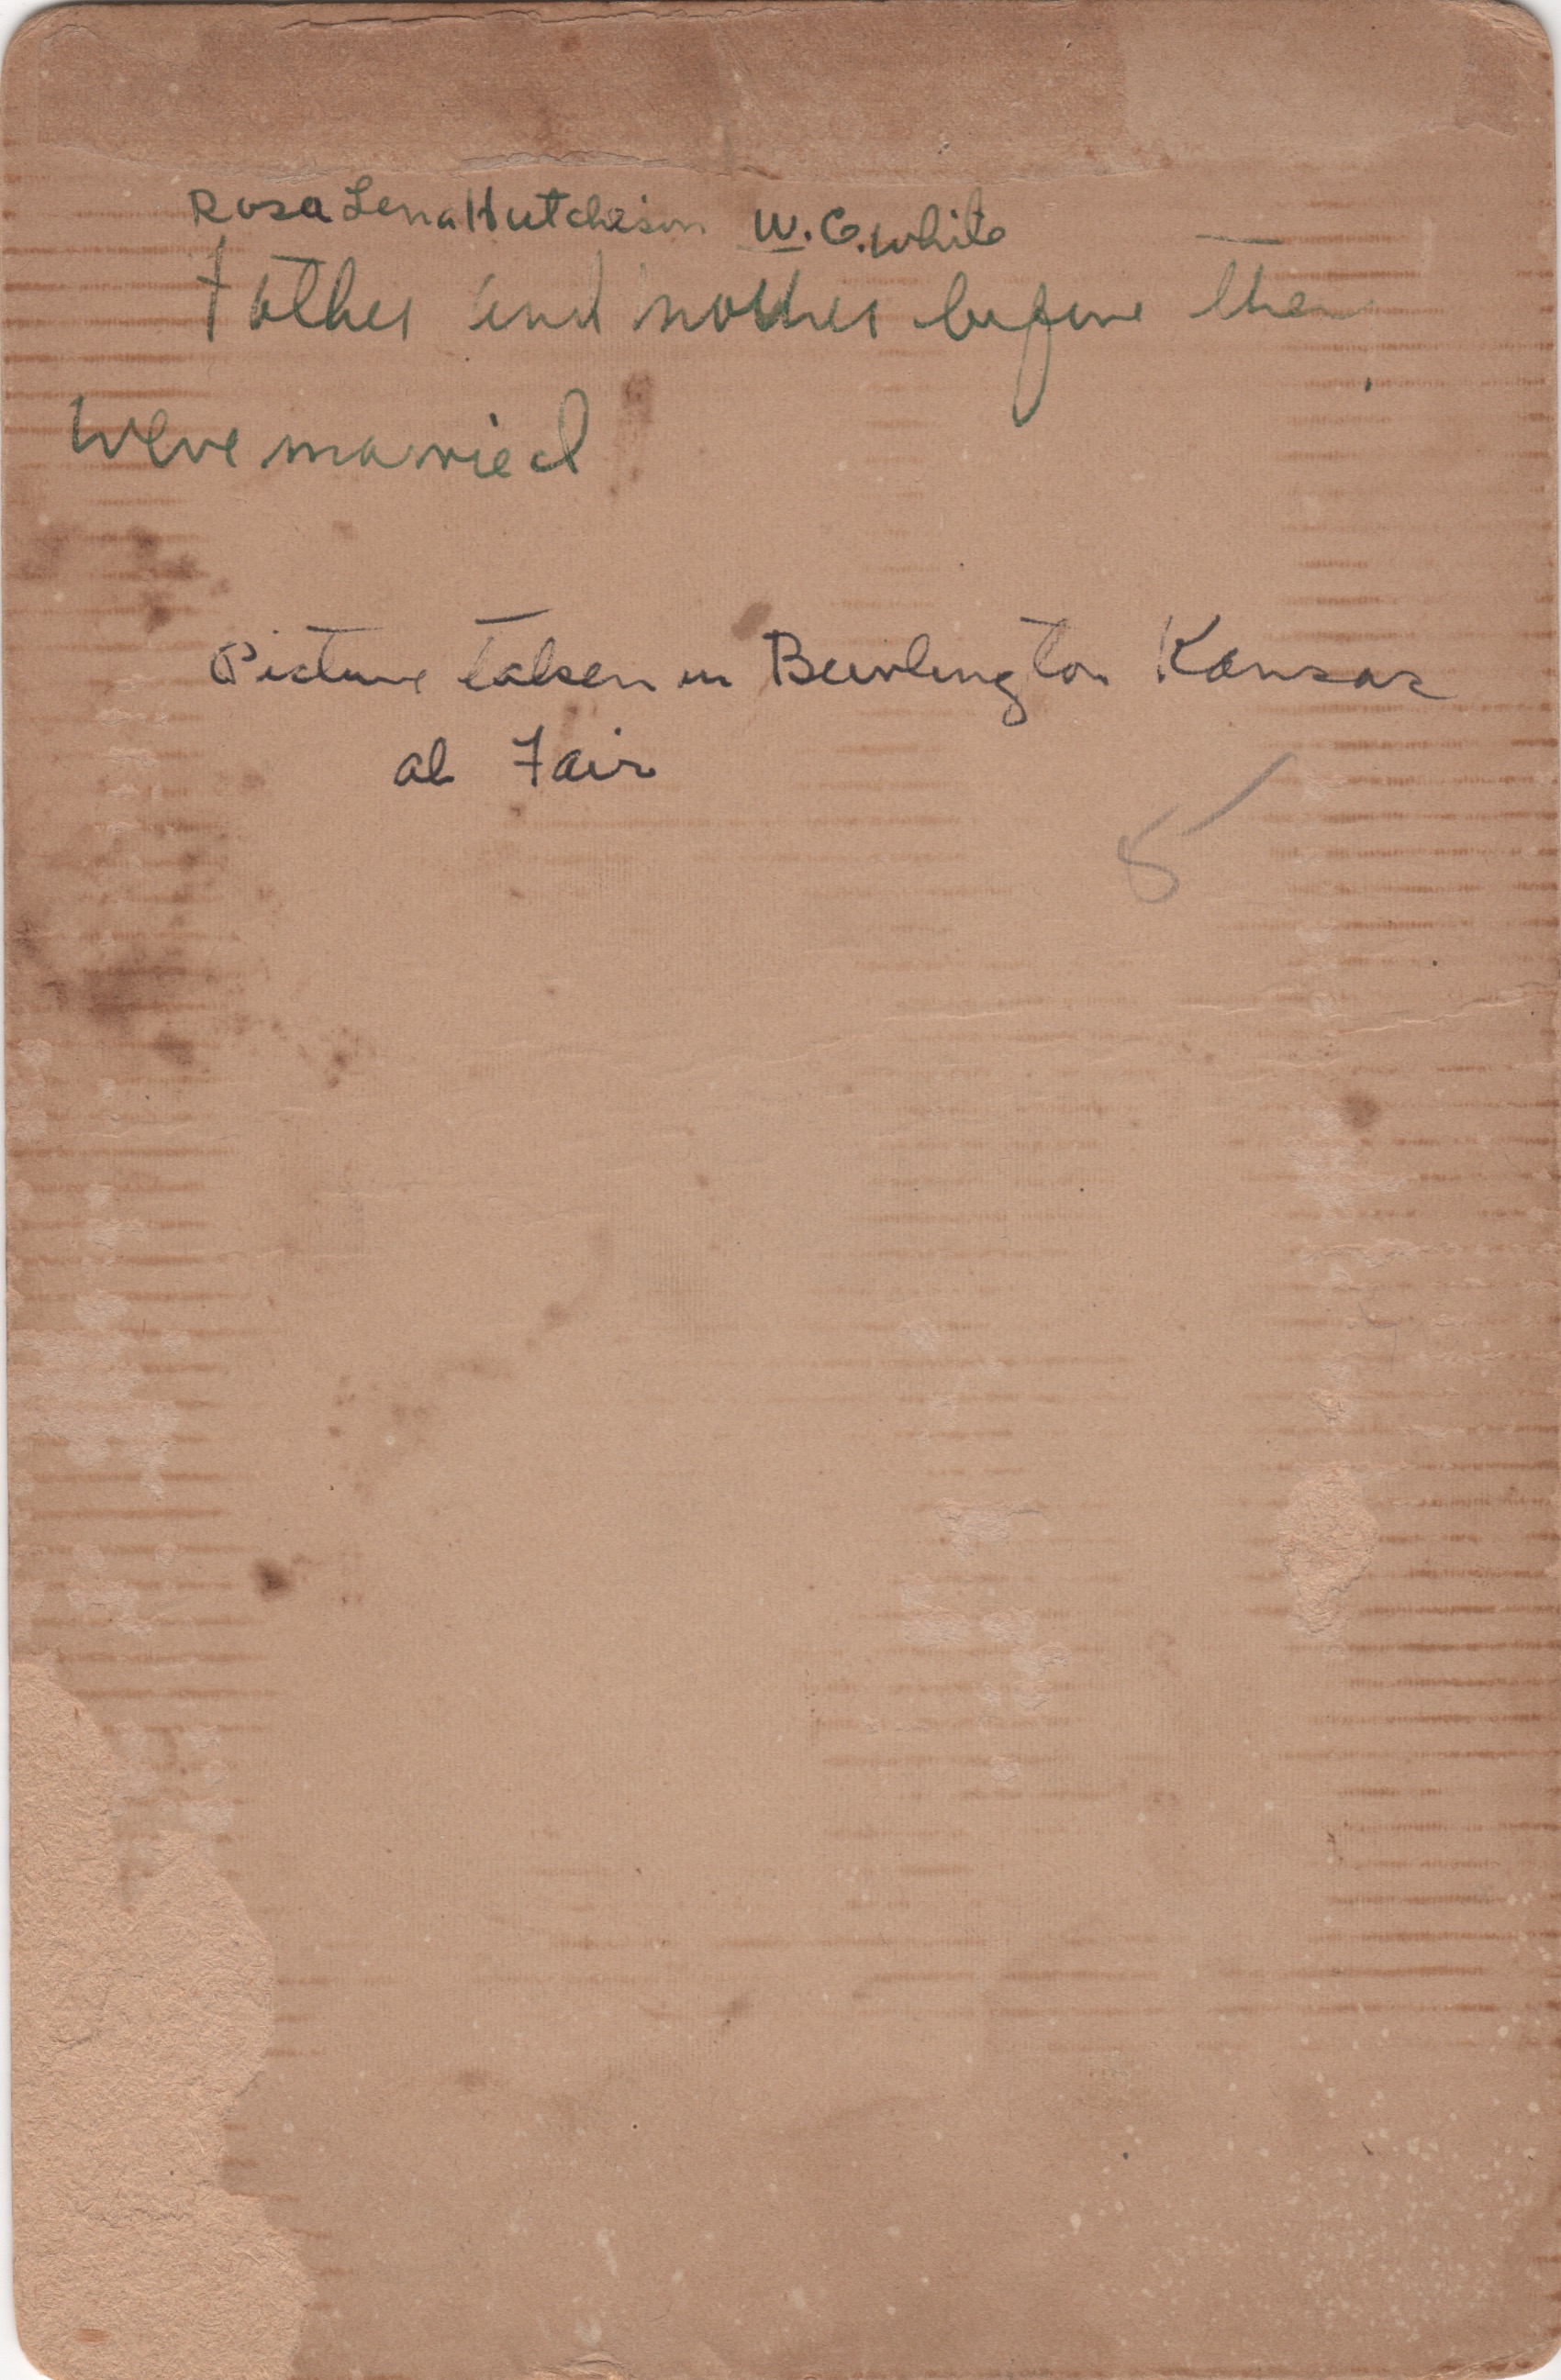 Rosa Lena Hutcheson W. C. White
Father and mother before they
were married
Picture taken in Burlington Kansas
at Fair
5